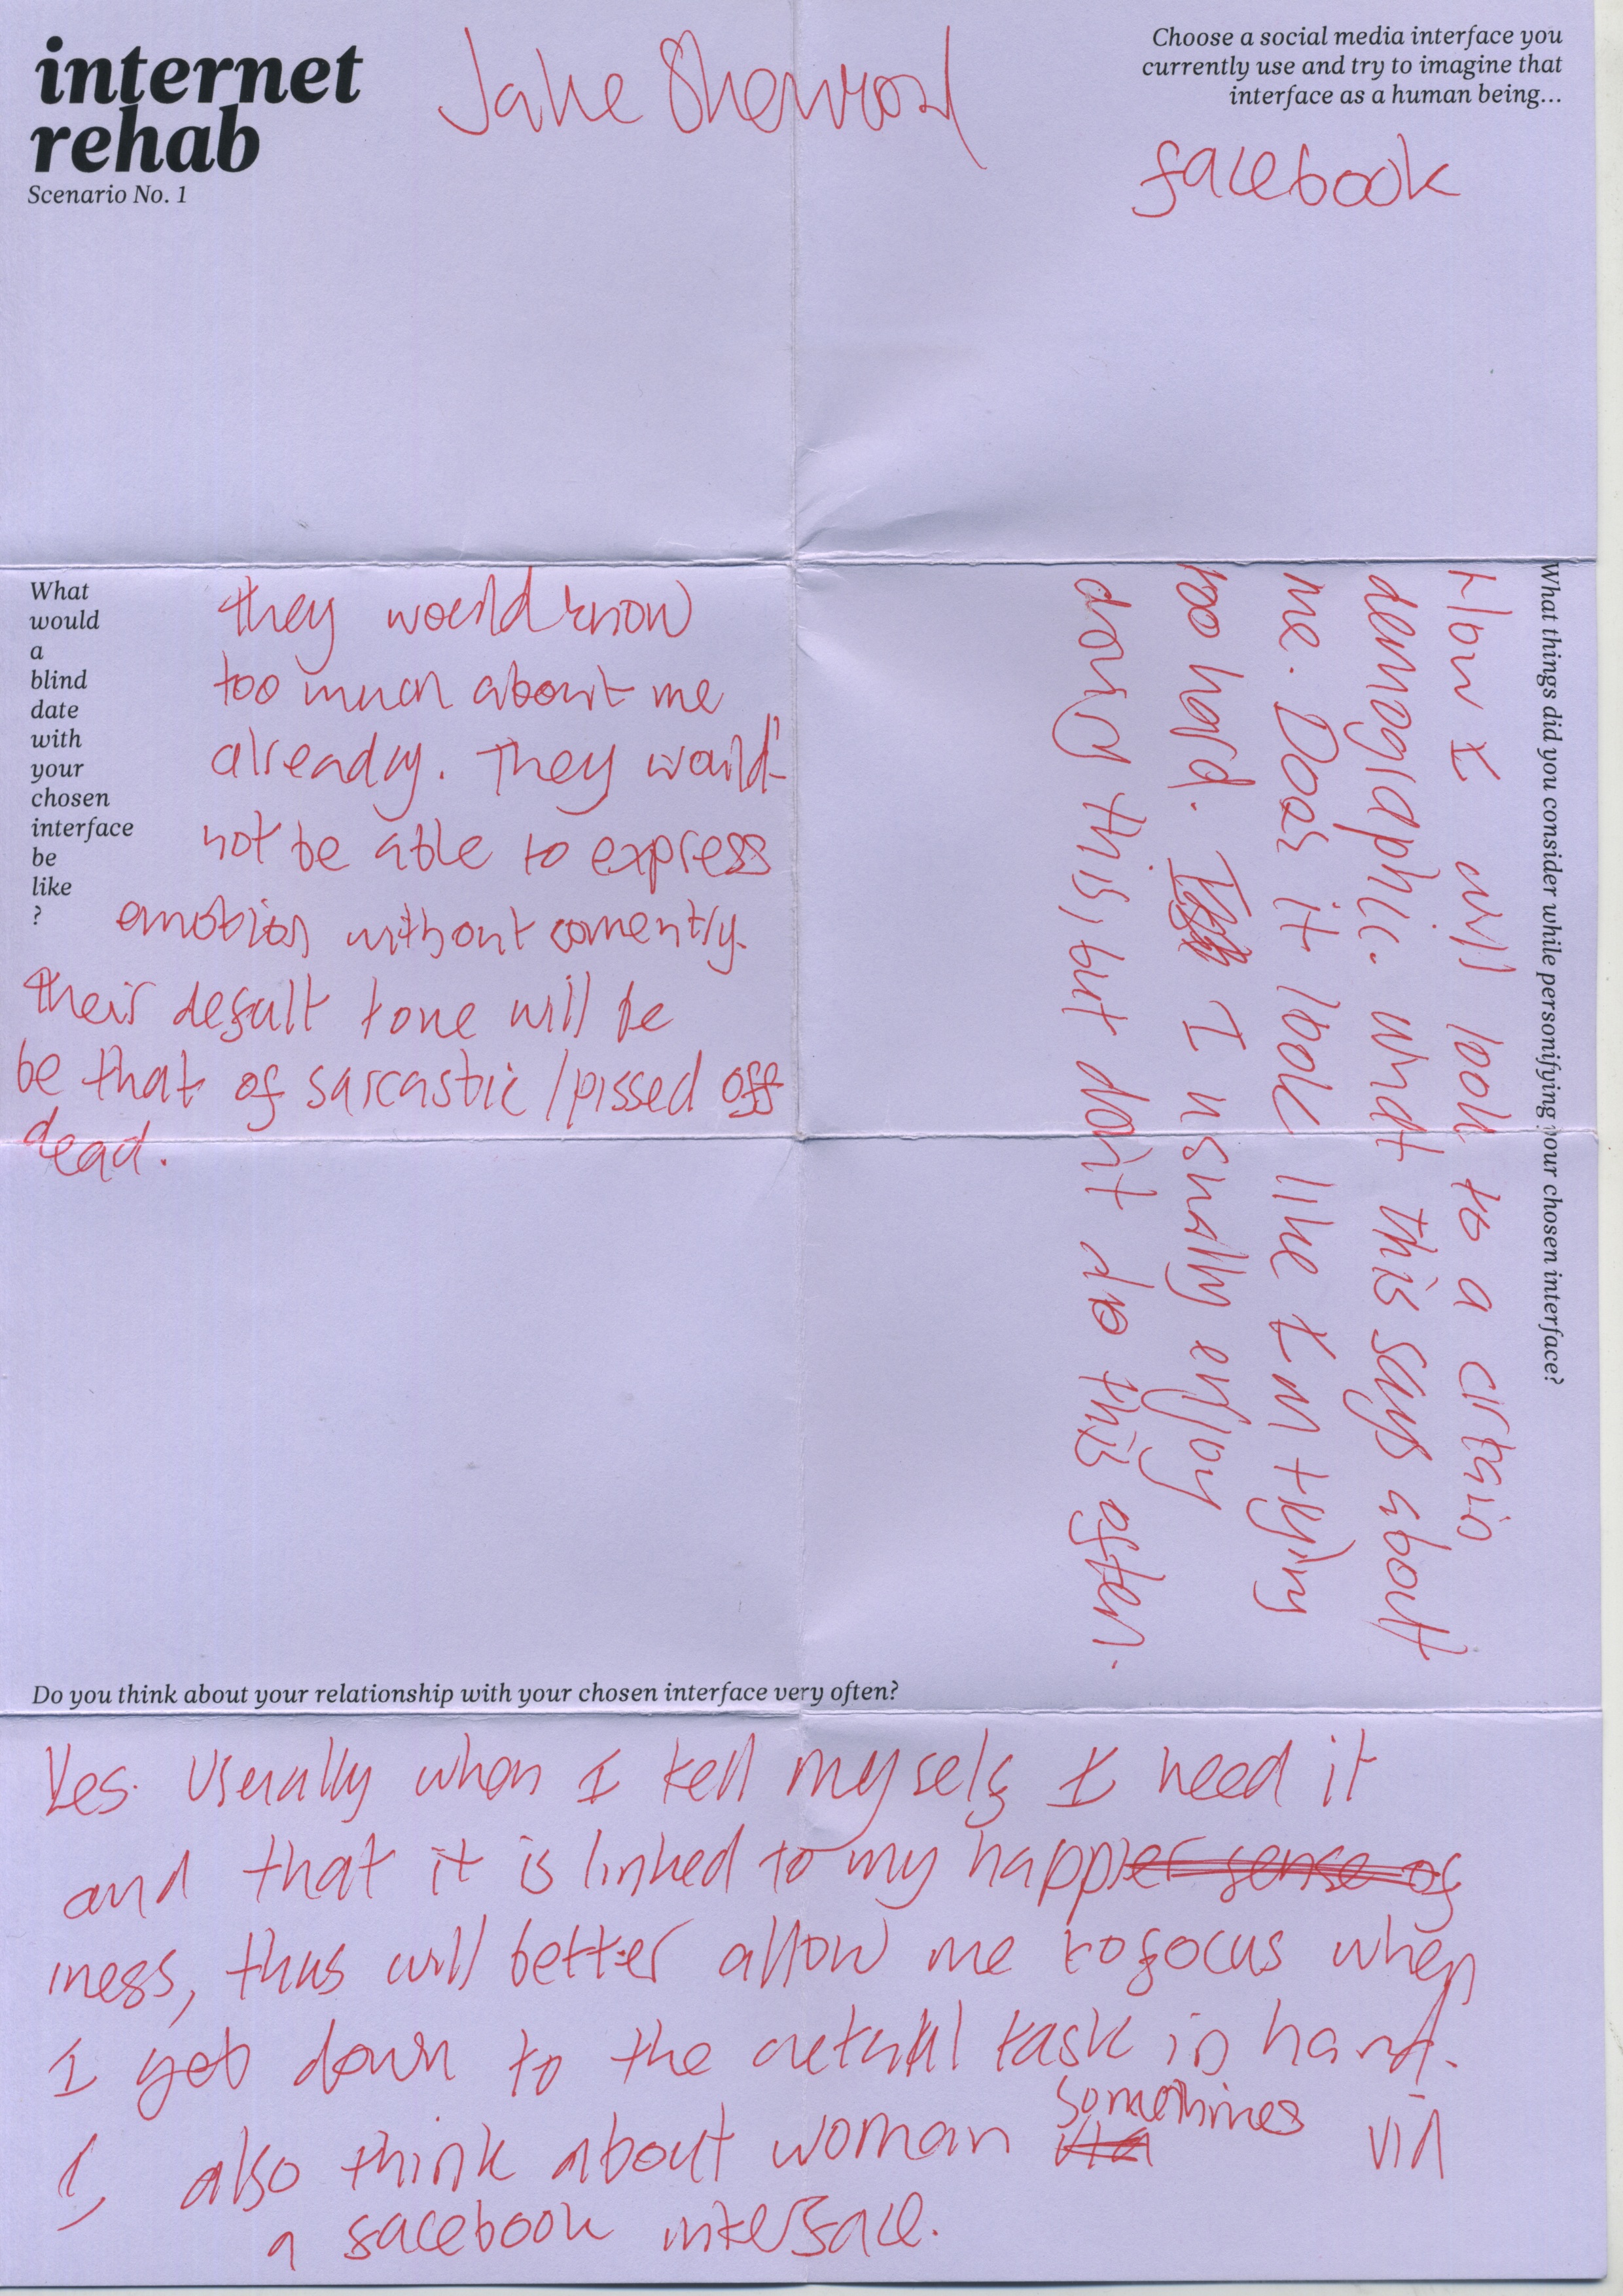 internet
rehab
Scenario No. 1
Jake Sherwood
Choose a social media interface you
currently use and try to imagine that
interface as a human being...
facebook
What
would
a
blind
date
with
your
chosen
interface
be
like
?
they would know
too much about me
already. They would
not be able to express
emotion without comently.
their defult tone will be
be that of sarcastic / pissed off
dead.
What things did you consider while personifying your chosen interface?
How I will look to a certain
demographic. what this says about
me. Does it look like I'm trying
too hard. I usually enjoy
doing this, but don't do this often.
Do you think about your relationship with your chosen interface very often?
Yes. Usually when I tell myself I need it
and that it is linked to my happier sense of
iness, thus will better allow me to focus when
I get down to the actual task in hand.
I also think about woman via sometimes via
a facebook interface.